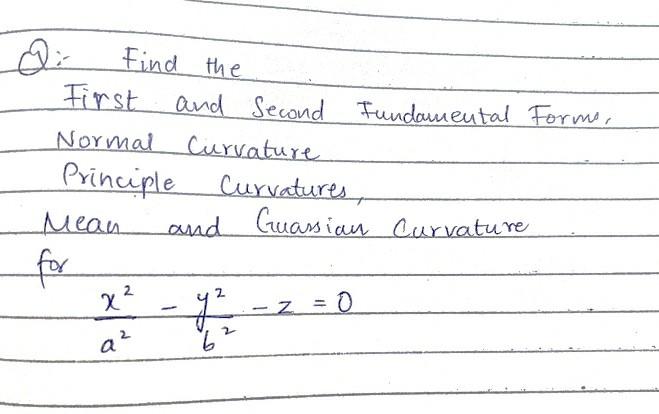 Q:- Find the
First and Second Fundamental Forms,
Normal Curvature
Principle Curvatures,
Mean and Guassian Curvature
for
x²/a² - y²/b² - z = 0